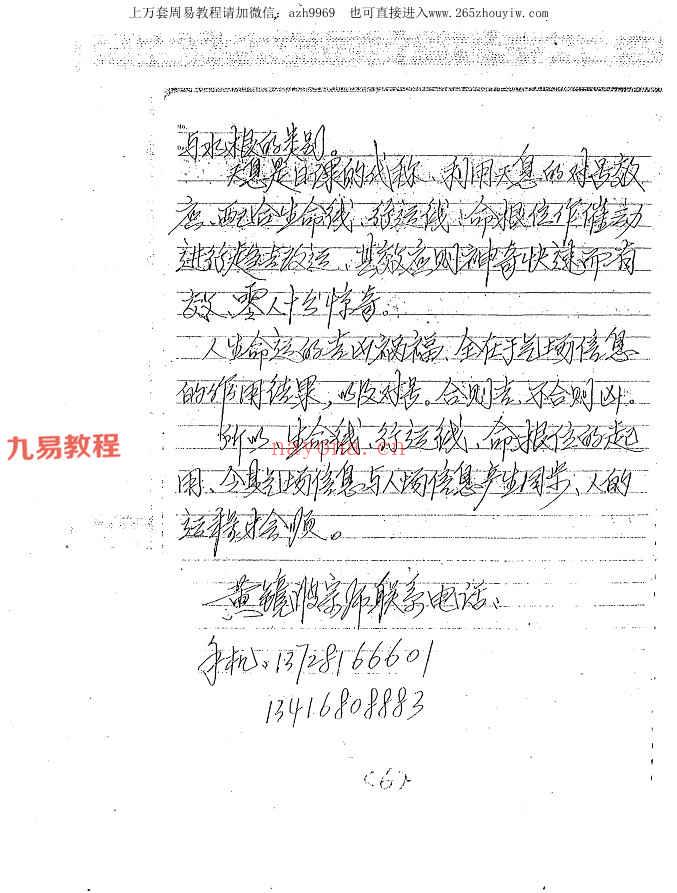 上万套周易教程请加微信：azh9969 也可直接进入www.265zhouyiw.com
与水根的类别。
天息是日课的代称、利用天息的对号效
应、配合生命线、行运线、命根位作催动
进行趋吉改运、其效应则神奇快速而有
效、零人十分惊奇。
人生命运的吉凶祸福、全在于气场信息
的作用结果，以及对号。合则吉、不合则凶。
所以、生命线、行运线、命根位的起
用、令其气场信息与人场信息产生同步、人的
运程才会顺。
九易教程
nayona.cn
黄镜波宗师联系电话：
手机：13728166601
13416808883
(6)